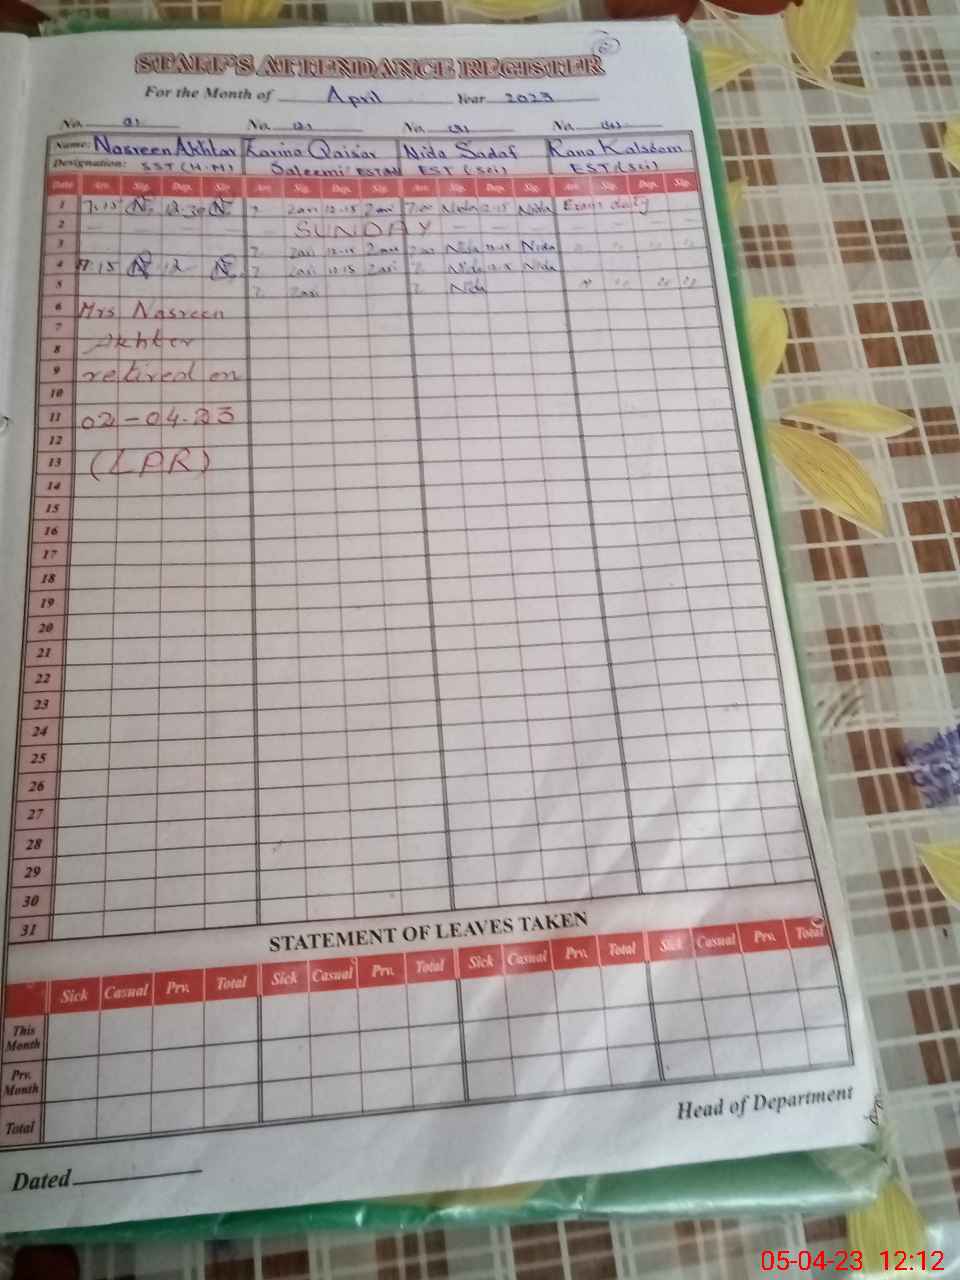 STAFF'S ATTENDANCE REGISTER
6
For the Month of April Year 2023
No. 01 No. (2) No. (3) No. (4)
Name: Nasreen Akhtar Zarina Qaisar Nida Sadaf Rana Kalsoom
Designation: SST (H.M) Saleemi EST EST (Sci) EST (Sci)
Date Arr. Sig. Dep. Sig. Arr. Sig. Dep. Sig. Arr. Sig. Dep. Sig. Arr. Sig. Dep. Sig.
1 7.15 N 12.30 N 7. Zari 12.15 Zari 7.00 Nida 12.15 Nida Exam duty
2 SUNDAY
3 7. Zari 12.15 7.00 Nida 12.15 Nida " " " "
4 7.15 N 12 N 7. Zari 12.15 Zari 7. Nida 12.15 Nida
5 7. Zari 7. Nida " " " "
6 Mrs Nasreen
7
8 Akhter
9 retired on
10
11 02-04-23
12
13 (LPR)
14
15
16
17
18
19
20
21
22
23
24
25
26
27
28
29
30
31
STATEMENT OF LEAVES TAKEN
Sick Casual Prv. Total Sick Casual Prv. Total Sick Casual Prv. Total Sick Casual Prv. Total
This Month
Prv. Month
Total
Head of Department
Dated
05-04-23 12:12